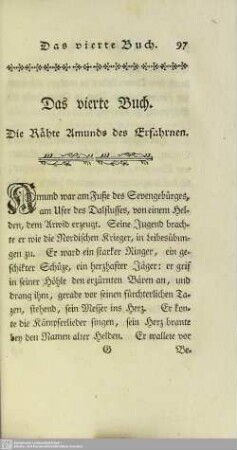 Das vierte Buch. 97
Das vierte Buch.
Die Rähte Amunds des Erfahrnen.
Amund war am Fuße des Sevengebürges,
am Ufer des Dalflusses, von einem Hel-
den, dem Arwid erzeugt. Seine Jugend brach-
te er wie die Nordischen Krieger, in Leibesübun-
gen zu. Er ward ein starker Ringer, ein ge-
schikter Schüze, ein herzhafter Jäger: er grif
in seiner Höhle den erzürnten Bären an, und
drang ihm, gerade vor seinen fürchterlichen Ta-
zen, stehend, sein Messer ins Herz. Er kon-
te die Kämpferlieder singen, sein Herz brante
bey den Namen alter Helden. Er wallete vor
G Be-